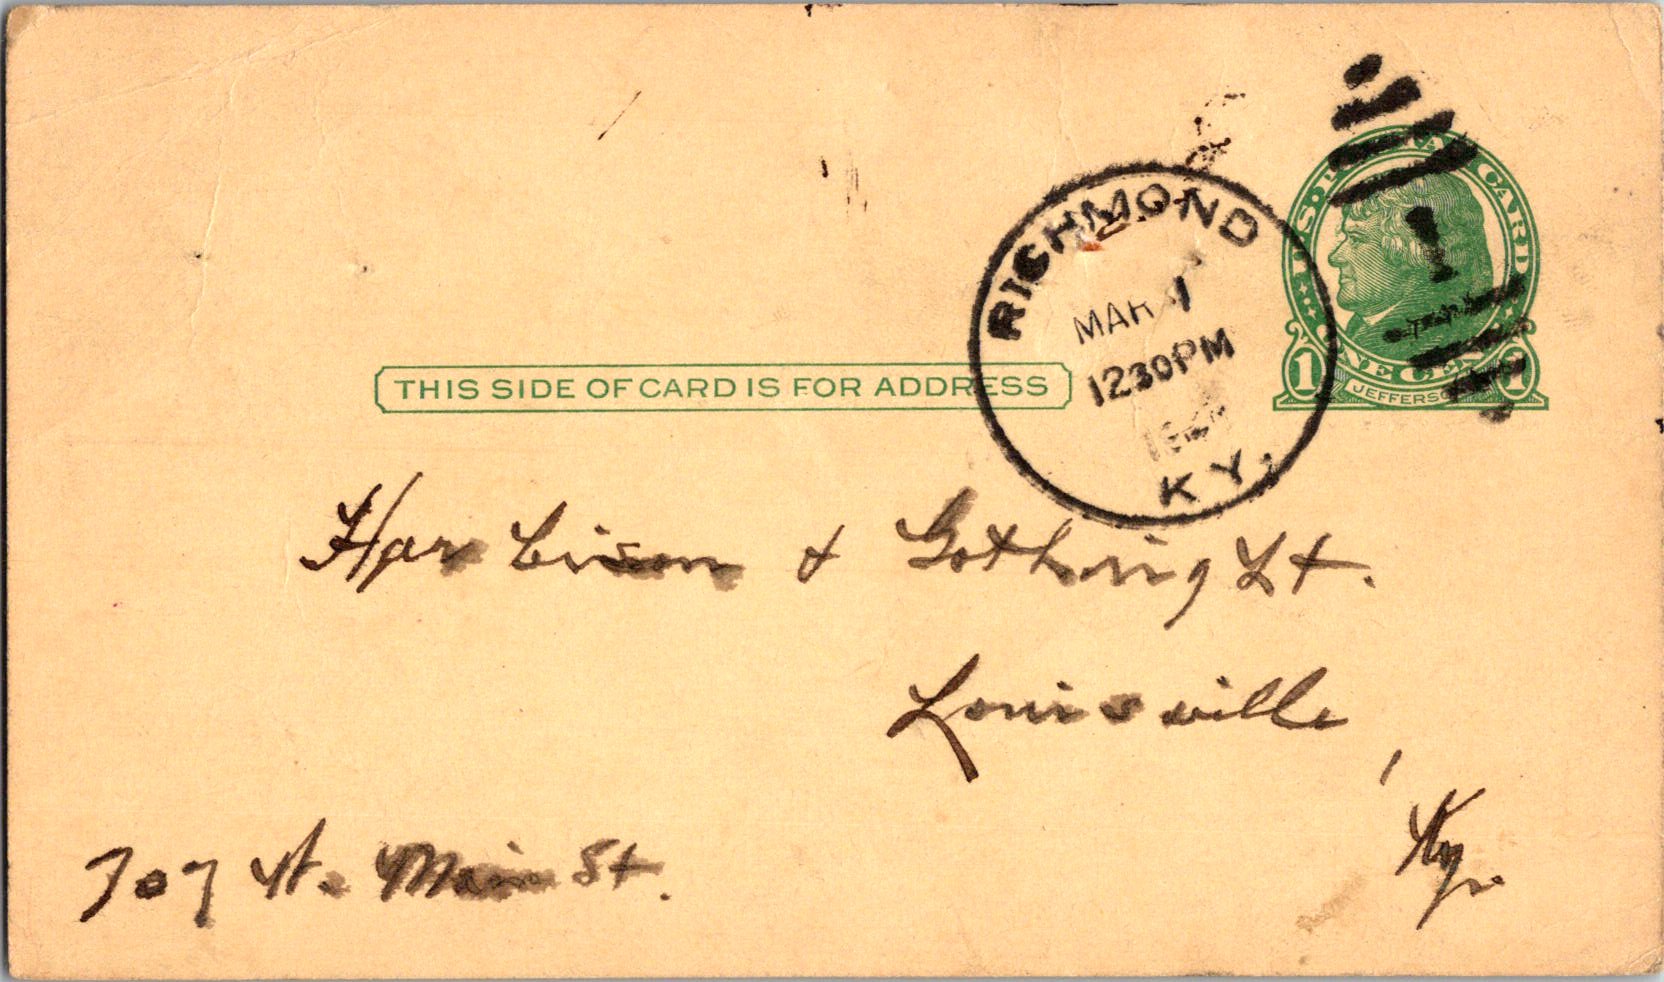 U.S. POSTAL CARD
RICHMOND
MAR
1230PM
KY.
1 ONE CENT 1
JEFFERSON
THIS SIDE OF CARD IS FOR ADDRESS
Harbison & Gothright.
Louisville,
Ky.
707 W. Main St.